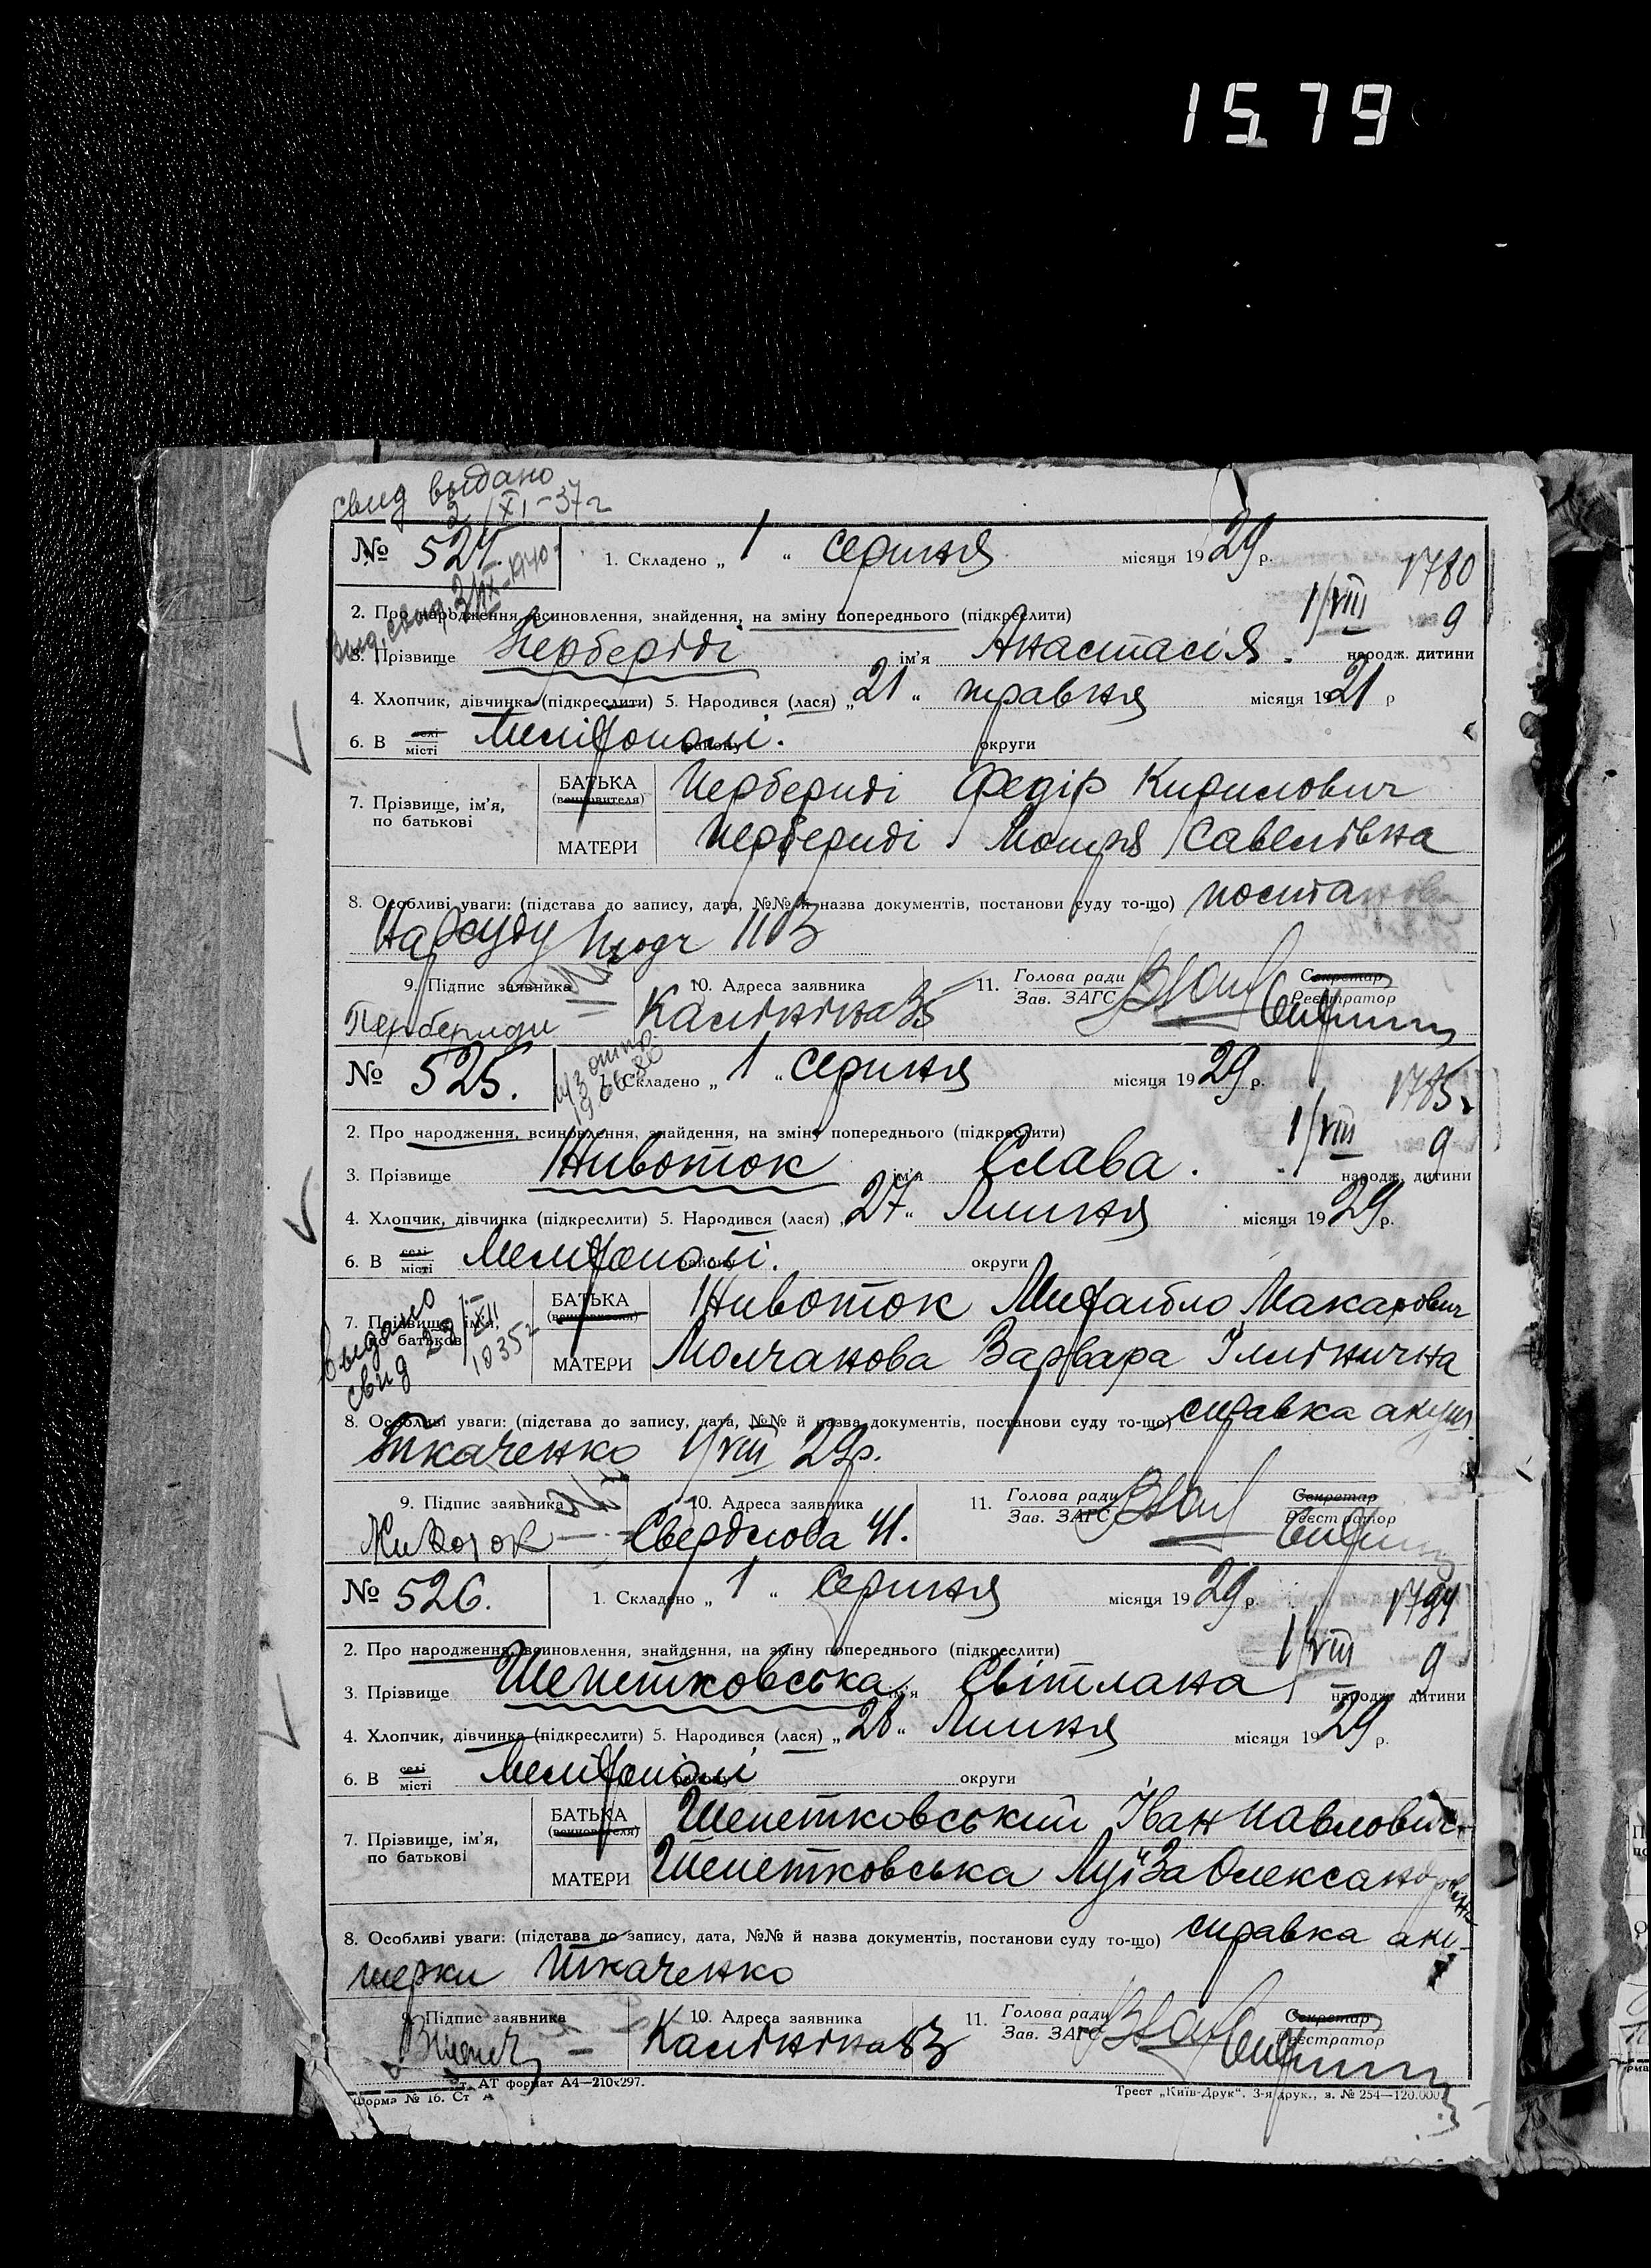 1579
свид выдано
2/XI-37г
№ 524. 1. Складено „ 1 “ серпня місяця 1929 р.
1780
Вид. свид. 3/IX-1940г
2. Про народження, всиновлення, знайдення, на зміну попереднього (підкреслити) 1/VIII 9
3. Прізвище Перберіді ім’я Анастасія. народж. дитини
4. Хлопчик, дівчинка (підкреслити) 5. Народився (лася) „ 21 “ травня місяця 1921 р
6. В селі місті Мелітополі. району округи
7. Прізвище, ім’я, по батькові БАТЬКА (всиновителя) Пербериді Федір Кирилович
МАТЕРИ Пербериді Мотря Савелівна
8. Особливі уваги: (підстава до запису, дата, №№ й назва документів, постанови суду то-що) постанова
Нарсуду 1103
9. Підпис заявника 10. Адреса заявника 11. Голова ради Зав. ЗАГС Секретар Реєстратор
Пербериди Калініна 35
№ 525. 1. Складено „ 1 “ серпня місяця 1929 р.
1785
2. Про народження, всиновлення, знайдення, на зміну попереднього (підкреслити) 1/VIII 9
3. Прізвище Животок ім’я Слава. народж. дитини
4. Хлопчик, дівчинка (підкреслити) 5. Народився (лася) „ 27 “ Липня місяця 1929 р.
6. В селі місті Мелітополі. району округи
7. Прізвище, ім’я, по батькові БАТЬКА (всиновителя) Животок Михайло Макарович
выдано свид 29/XII 1935г
МАТЕРИ Молчанова Варвара Ілінична
8. Особливі уваги: (підстава до запису, дата, №№ й назва документів, постанови суду то-що) справка акуш.
Ткаченко 1/VIII 29р.
9. Підпис заявника 10. Адреса заявника 11. Голова ради Зав. ЗАГС Секретар Реєстратор
Животок Свердлова 41.
№ 526. 1. Складено „ 1 “ серпня місяця 1929 р.
1794
2. Про народження, всиновлення, знайдення, на зміну попереднього (підкреслити) 1/VIII 9
3. Прізвище Шепетковська ім’я Світлана народж. дитини
4. Хлопчик, дівчинка (підкреслити) 5. Народився (лася) „ 28 “ Липня місяця 1929 р.
6. В селі місті Мелітополі району округи
7. Прізвище, ім’я, по батькові БАТЬКА (всиновителя) Шепетковський Іван Павлович
МАТЕРИ Шепетковська Луїза Олександрівна
8. Особливі уваги: (підстава до запису, дата, №№ й назва документів, постанови суду то-що) справка аку-
шерки Ткаченко
9. Підпис заявника 10. Адреса заявника 11. Голова ради Зав. ЗАГС Секретар Реєстратор
Калініна 83
Форма № 16. Ст. АТ формат А4—210×297. Трест „Київ-Друк“. 3-я друк., з. № 254—120.000.